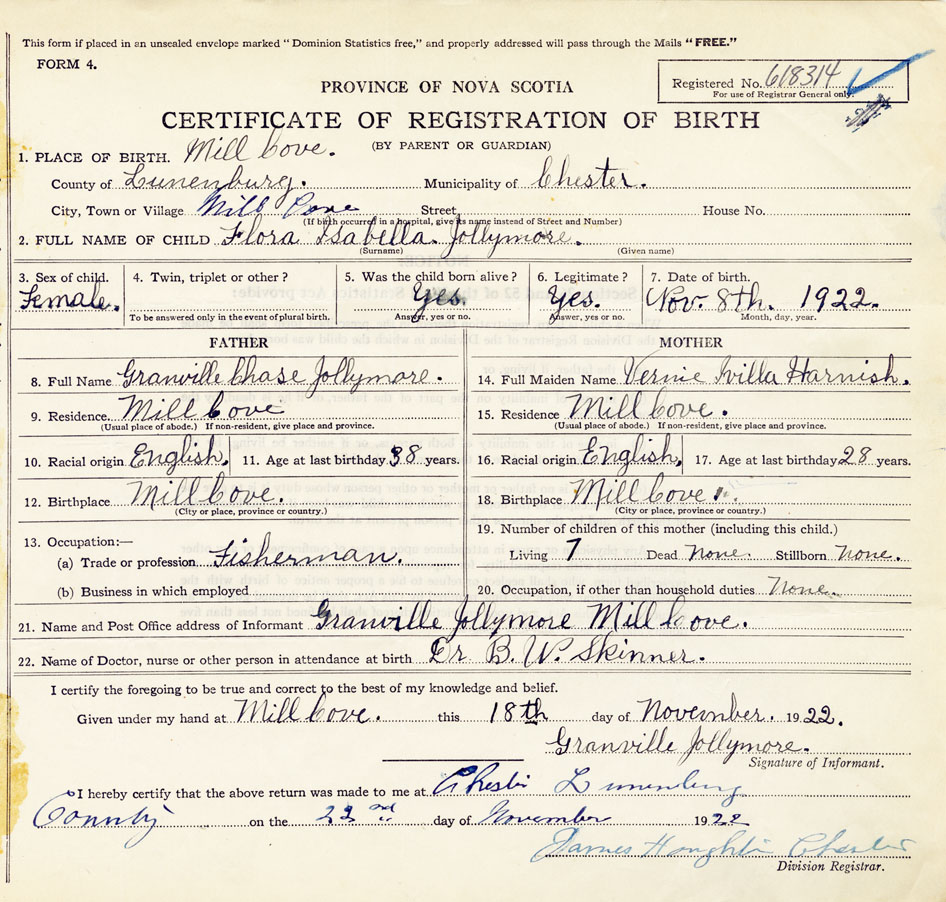 This form if placed in an unsealed envelope marked "Dominion Statistics free," and properly addressed will pass through the Mails "FREE."
FORM 4.
Registered No. 618314
For use of Registrar General only.
PROVINCE OF NOVA SCOTIA
CERTIFICATE OF REGISTRATION OF BIRTH
(BY PARENT OR GUARDIAN)
1. PLACE OF BIRTH. Mill Cove.
County of Lunenburg. Municipality of Chester.
City, Town or Village Mill Cove Street House No.
(If birth occurred in a hospital, give its name instead of Street and Number)
2. FULL NAME OF CHILD Flora Isabella. Jollymore.
(Surname) (Given name)
3. Sex of child. 4. Twin, triplet or other ? 5. Was the child born alive ? 6. Legitimate ? 7. Date of birth.
Female. Yes. Yes. Nov. 8th. 1922.
To be answered only in the event of plural birth. Answer, yes or no. Answer, yes or no. Month, day, year.
FATHER MOTHER
8. Full Name Granville Chase Jollymore. 14. Full Maiden Name Vernie Wvilla Harnish.
9. Residence. Mill Cove 15. Residence Mill Cove.
(Usual place of abode.) If non-resident, give place and province. (Usual place of abode.) If non-resident, give place and province.
10. Racial origin English. 11. Age at last birthday 38 years. 16. Racial origin English. 17. Age at last birthday 28 years.
12. Birthplace Mill Cove. 18. Birthplace Mill Cove.
(City or place, province or country.) (City or place, province or country.)
13. Occupation:— 19. Number of children of this mother (including this child.)
(a) Trade or profession Fisherman. Living 7 Dead None. Stillborn None.
(b) Business in which employed 20. Occupation, if other than household duties None.
21. Name and Post Office address of Informant Granville Jollymore Mill Cove.
22. Name of Doctor, nurse or other person in attendance at birth Dr. B. W. Skinner.
I certify the foregoing to be true and correct to the best of my knowledge and belief.
Given under my hand at Mill Cove. this 18th day of November. 1922.
Granville Jollymore.
Signature of Informant.
I hereby certify that the above return was made to me at Chester Lunenburg
County on the 22nd day of November 1922
James Houghton Chester
Division Registrar.